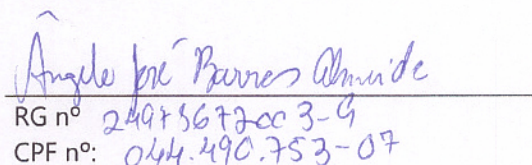 Ângelo José Barros Almeida
RG nº 249736772003-9
CPF nº: 044.490.753-07